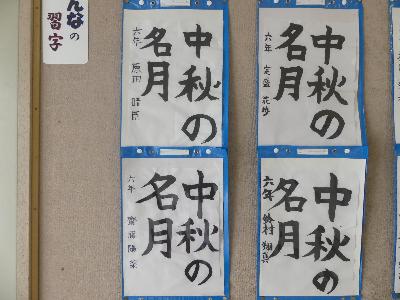 んなの
習字
中秋の
名月
六年
中秋の
名月
六年
中秋の
名月
六年
中秋の
名月
六年 鈴村